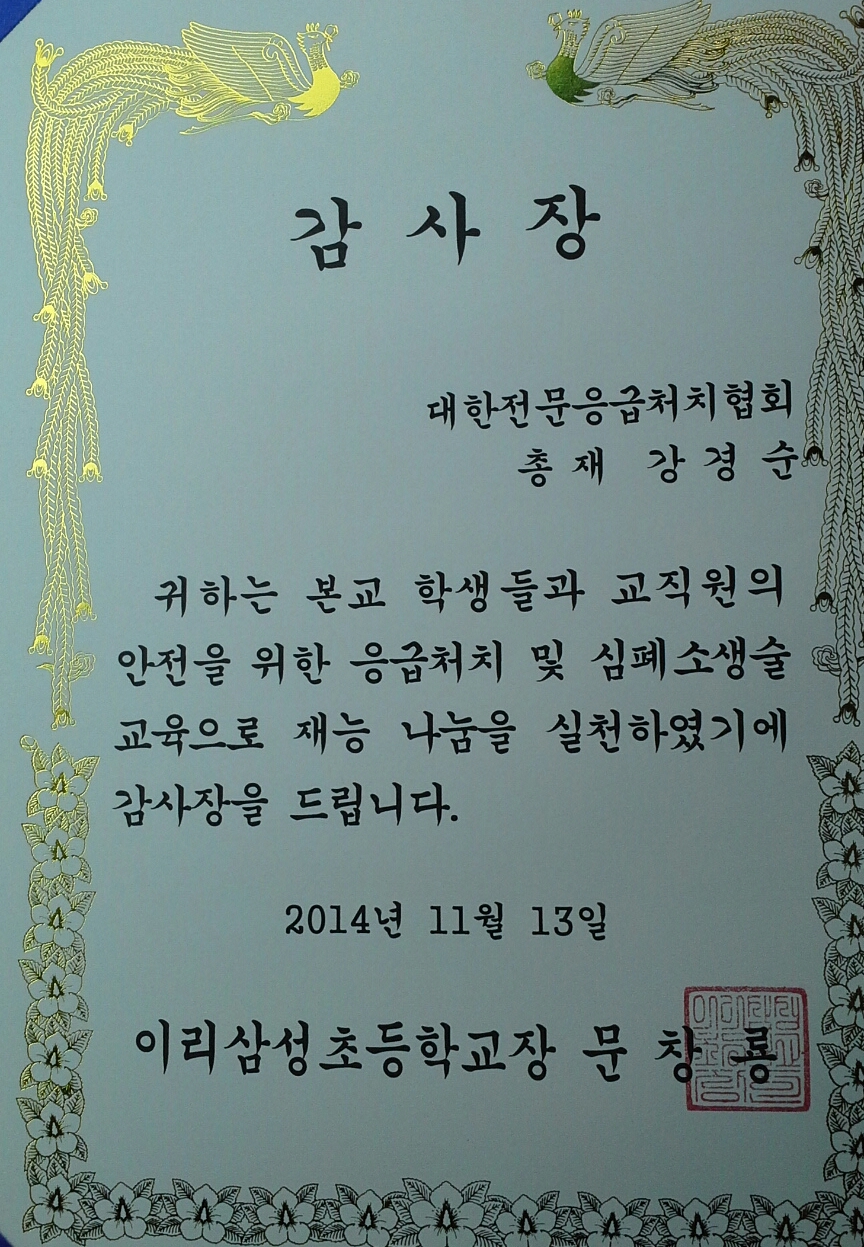 감 사 장
대한전문응급처치협회
총 재 강 경 순
귀하는 본교 학생들과 교직원의
안전을 위한 응급처치 및 심폐소생술
교육으로 재능 나눔을 실천하였기에
감사장을 드립니다.
2014년 11월 13일
이리삼성초등학교장 문 창 룡